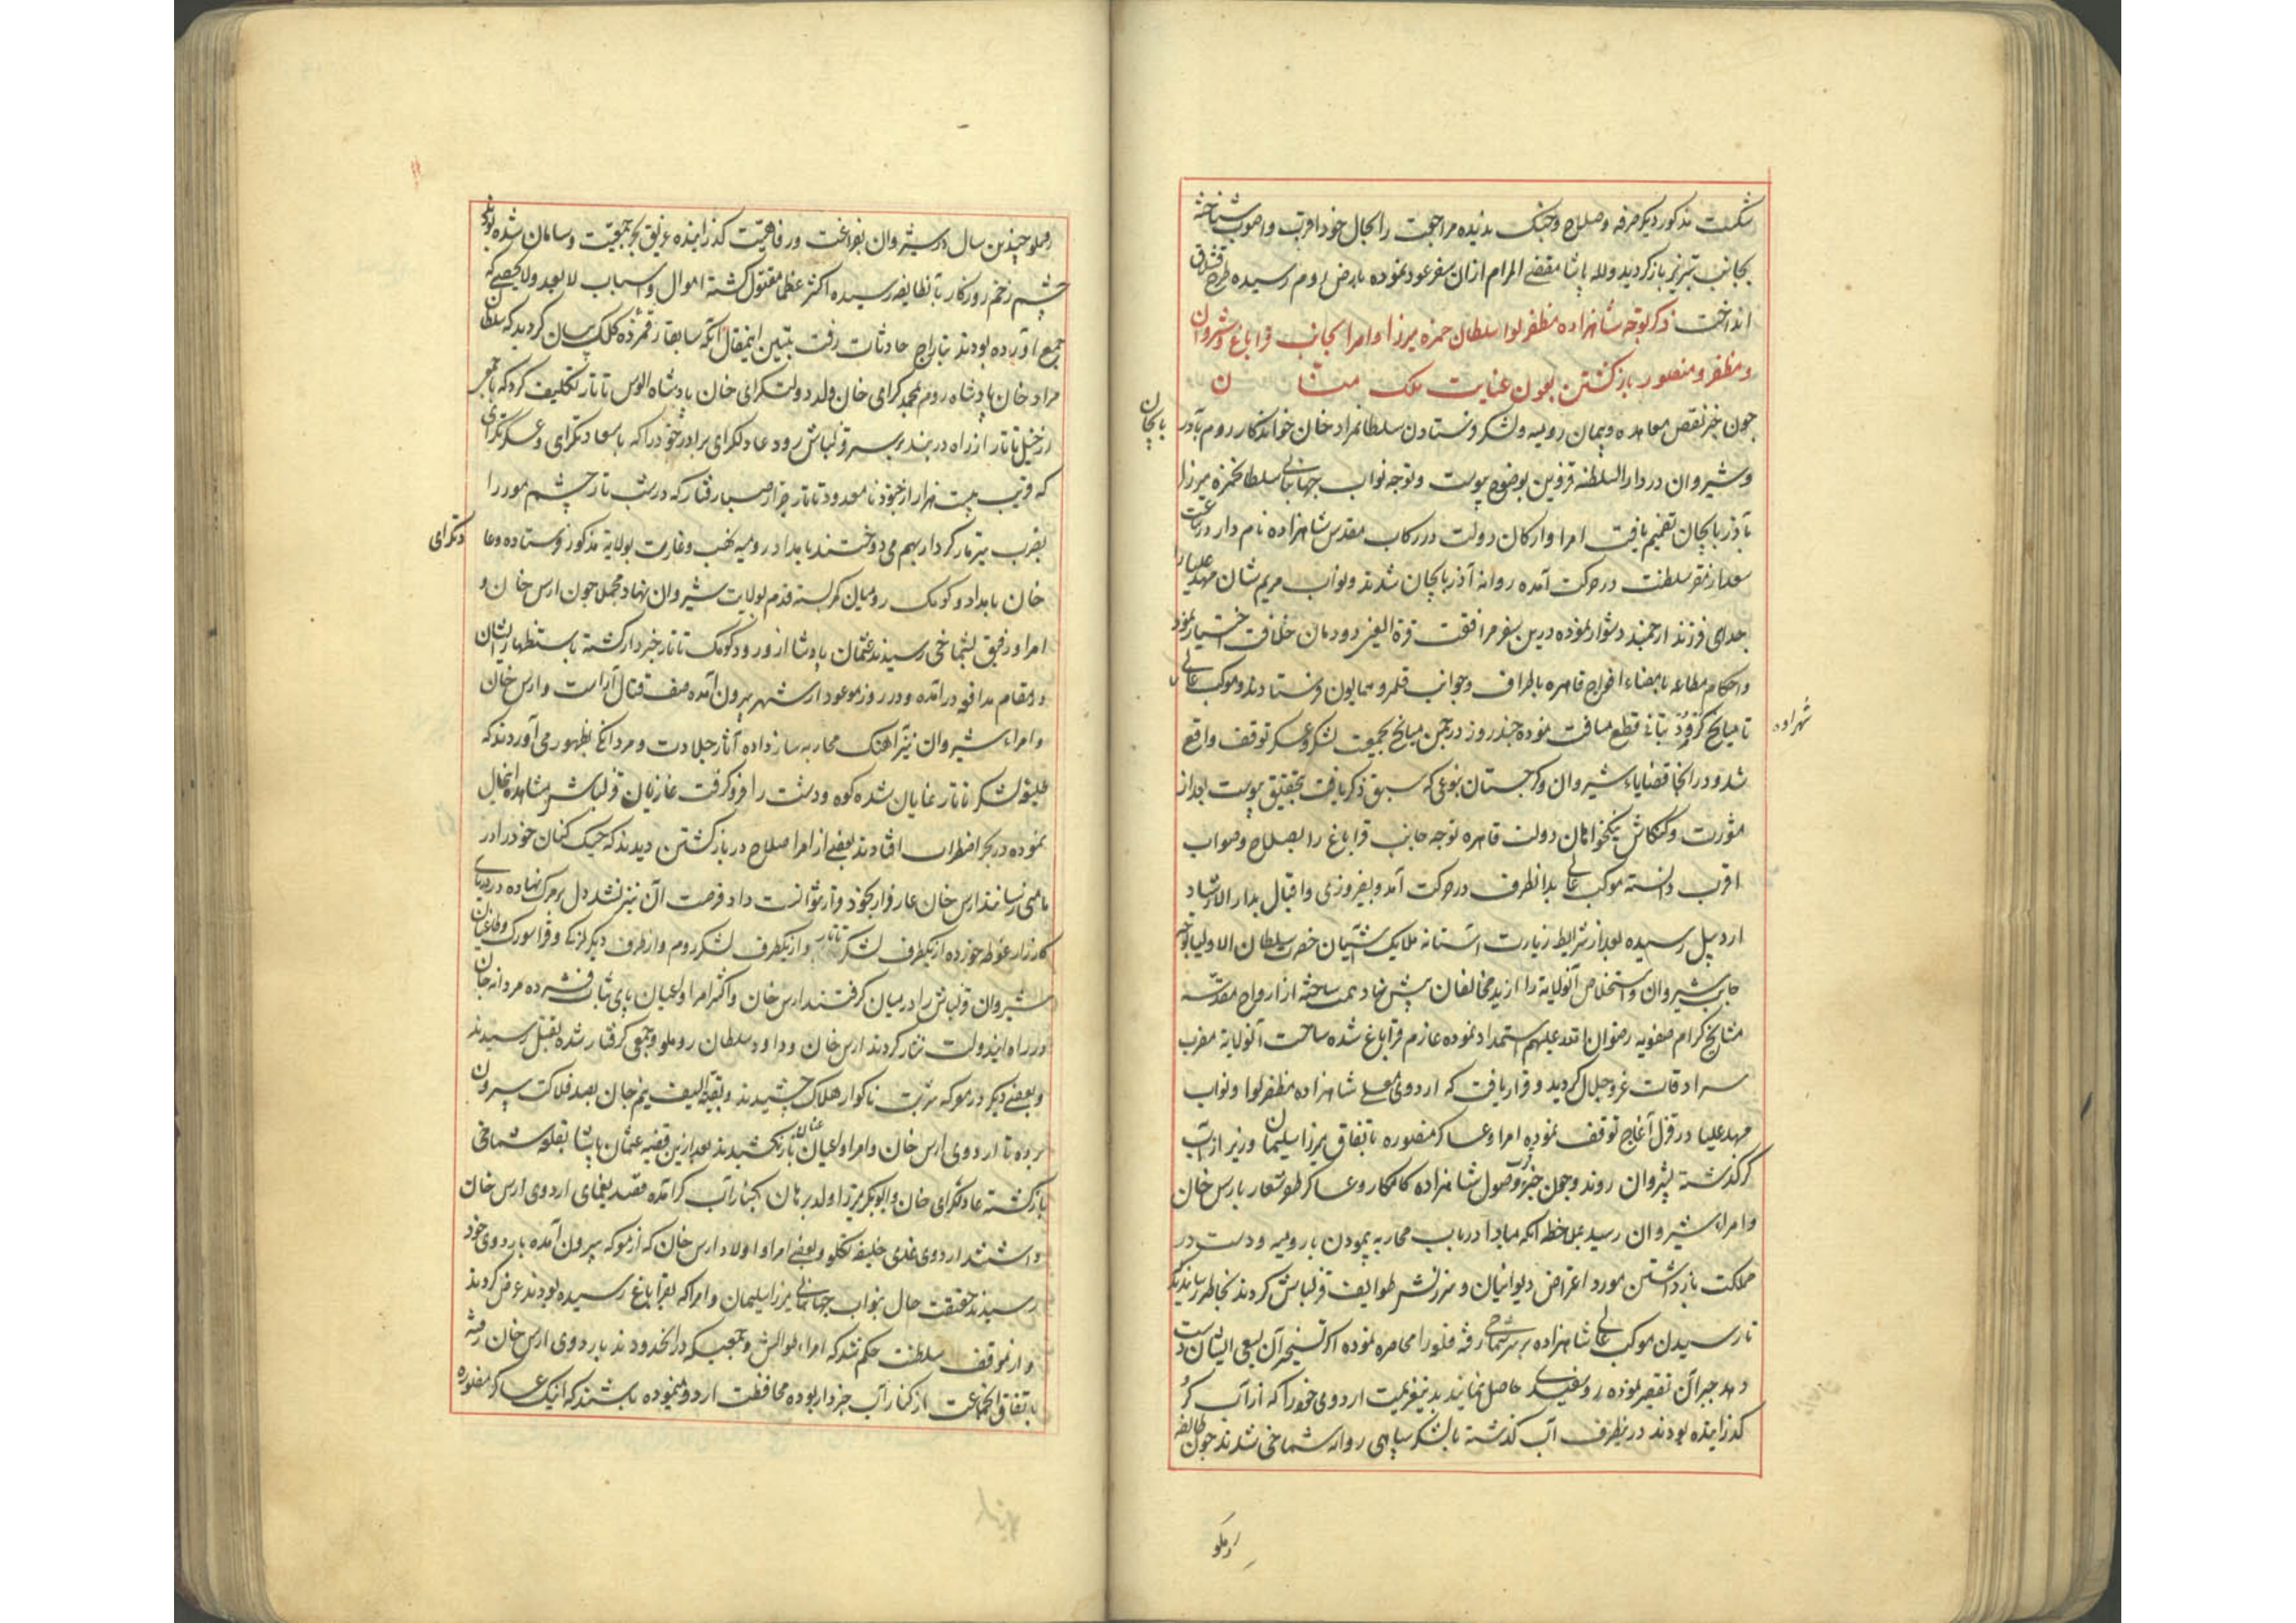 شکست مذکور دیگر صرفه و صلاح و جنک ندیده مراجعت را بحال خود اقرب و اصوب شناخته
بجانب تبریز باز کردید و لله پاشا مقضی المرام ازان سفر عود نموده بارض روم رسیده طرح قشلاق
انداخت ذکر توجه شاهزاده مظفر لوا سلطان حمزه میرزا و امرا بجانب قراباغ و شیروان
و مظفر و منصور باز کشتن بعون عنایت ملک منان
چون خبر نقص معاهده و پیمان رومیه و لشکر فرستادن سلطانمراد خان خواندکار روم بآذر
بایجان
و شیروان در دار السلطنه قزوین بوضوح پیوست و توجه نواب جهانبانی سلطانحمزه میرزا
بآذربایجان تصمیم یافت امرا و ارکان دولت در رکاب مقدس شاهزاده نام دار در ساعت
سعد از مقر سلطنت در حرکت آمده روانه آذربایجان شدند و نواب مریم شان مهد علیا را
جدای فرزند ارجمند دشوار نموده درین سفر مرافقت قرة العین دودمان خلافت اختیار نمود
و احکام مطاعه باحضاء افواج قاهره باطراف و جوانب قلمرو همایون فرستادند و موکب عالی
شهزاده
تا میانج قطع مسافت نموده چند روز در چمن میانج بجمعیت لشکر و عسکر توقف واقع
شد و در انجا قضایاء شیروان و کرجستان بنوعی که سبق ذکر یافت بتحقیق پیوست بعد از
مشورت و کنکاش نیکخواهان دولت قاهره توجه جانب قراباغ را بصلاح و صواب
اقرب دانسته موکب عالی بدانطرف در حرکت آمد و بفیروزی و اقبال بدار الارشاد
اردبیل رسیده بعد از شرایط زیارت آستانه ملایک آشیان حضرت سلطان الاولیا توجه
جانب شیروان و استخلاص آنولایة را از ید مخالفان پیش نهاد همت ساخته از ارواح مقدسه
مشایخ کرام صفویه رضوان الله علیهم استمداد نموده عازم قراباغ شده ساحت آنولایة مضرب
سرادقات عز و جلال کردید و قرار یافت که اردوی معلی شاهزاده مظفر لوا و نواب
مهد علیا در قزل آغاج توقف نموده امرا و عساکر منصوره باتفاق میرزا سلیمان وزیر از آب
کر کذشته بشیروان روند و چون خبر قرب وصول شاهزاده کامکار و عساکر ظفر شعار بارس خان
و امراء شیروان رسید بملاحظه آنکه مبادا در باب محاربه نمودن با رومیه و دست در
مملکت باز داشتن مورد اعتراض دیوانیان و سرزنش طوایف قزلباش کردند بخاطر رسانیدند که
تا رسیدن موکب عالی شاهزاده بر سر شماخی رفته قلعه را محاصره نموده اکر تسخیر آن بسعی ایشان دست
دهد جبر آن تقصیر نموده رو سفیدی حاصل نمایند بدین عزیمت اردوی خود را که از آب کر
کذرانیده بودند در ینطرف آب کذشته با لشکر سپاهی روانه شماخی شدند چون طایفه
روملو
روملو چندین سال در شیروان بفراغت و رفاهیت کذرانیده غریق بحر جمعیت و سامان شده بودند
چشم زخم روزکار بآنطایفه رسیده اکثر عظما مقتول کشته اموال و اسباب لا یعد و لا یحصی که
جمع آورده بودند بتاراج حادثات رفت تبیین اینمقال آنکه سابقا رقمزده کلک بیان کردید که سلطان
مراد خان پادشاه روم بمحمد کرای خان ولد دولتکرای خان پادشاه الوس تاتار تکلیف کرد که با جمعی
از خیل تاتار از راه دربند بر سر قزلباش رود عادلکرای برادر خود را که با سعادتکرای و عسکر تکرای
که قریب بیست هزار از جنود نا معدود تاتار جرار صبا رفتار که در شب تار چشم مور را
بضرب تیر مار کردار بهم می دوختند بامداد رومیه نهب و غارت بولایة مذکور فرستاده و عا
دلکرای
خان بامداد و کومک رومیان کمر بسته قدم بولایت شیروان نهاد مجملا چون ارس خان و
امراء رفیق بشماخی رسیدند عثمان پادشا از ورود کومک تاتار خبردار کشته باستظهار ایشان
در مقام مدافعه در آمده و در روز موعود از شهر بیرون آمده صف قتال آراست و ارس خان
و امراء شیروان نیز آهنک محاربه ساز داده آثار جلادت و مردانکی بظهور می آوردند که
طلیعه لشکر تاتار نمایان شده کوه و دشت را فرو کرفت غازیان قزلباش مشاهده اینحال
نموده در بحر اضطراب افتادند بعضی از امرا صلاح در باز کشتن دیدند که جنک کنان خود را در
مامنی رسانند ارس خان عار فرار بخود قرار نتوانست داد فرصت آن نیز نشد دل بر مرک نهاده در دریای
کارزار غوطه خورده از یکطرف لشکر تاتار و از یکطرف لشکر روم و از طرف دیگر لزکی و قراسورک و طاغیان
شیروان قزلباش را در میان کرفتند ارس خان و اکثر امرا و اعیان پای ثبات فشرده مردانه جان
در راه ایندولت نثار کردند ارس خان و داود سلطان روملو و جمعی کرفتار شده بقتل رسیدند
و بعضی دیکر در معرکه شربت ناکوار هلاک چشیدند و بقیة السیف نیم جان بصد فلاکت بیرون
برده تا اردوی ارس خان و امرا و اعیان عنان باز نکشیدند بعد ازین قضیه عثمان پاشا بقلعه شماخی
باز کشته عادلکرای خان و ابوبکر میرزا ولد برهان بکنار آب کر آمده قصد یغمای اردوی ارس خان
داشتند اردوی غدی خلیفه تکلو و بعضی امرا و اولاد ارس خان که از معرکه بیرون آمده باردوی خود
رسیدند حقیقت حال بنواب جهانبانی میرزا سلیمان و امرا که بقراباغ رسیده بودند عرض کردند
و از موقف سلطنت حکم شد که امراء طوالش و جمعیکه در انحدودند باردوی ارس خان رفته
باتفاق انجماعت از کنار آب خبردار بوده محافظت اردو مینموده باشند که اینک عساکر منصوره